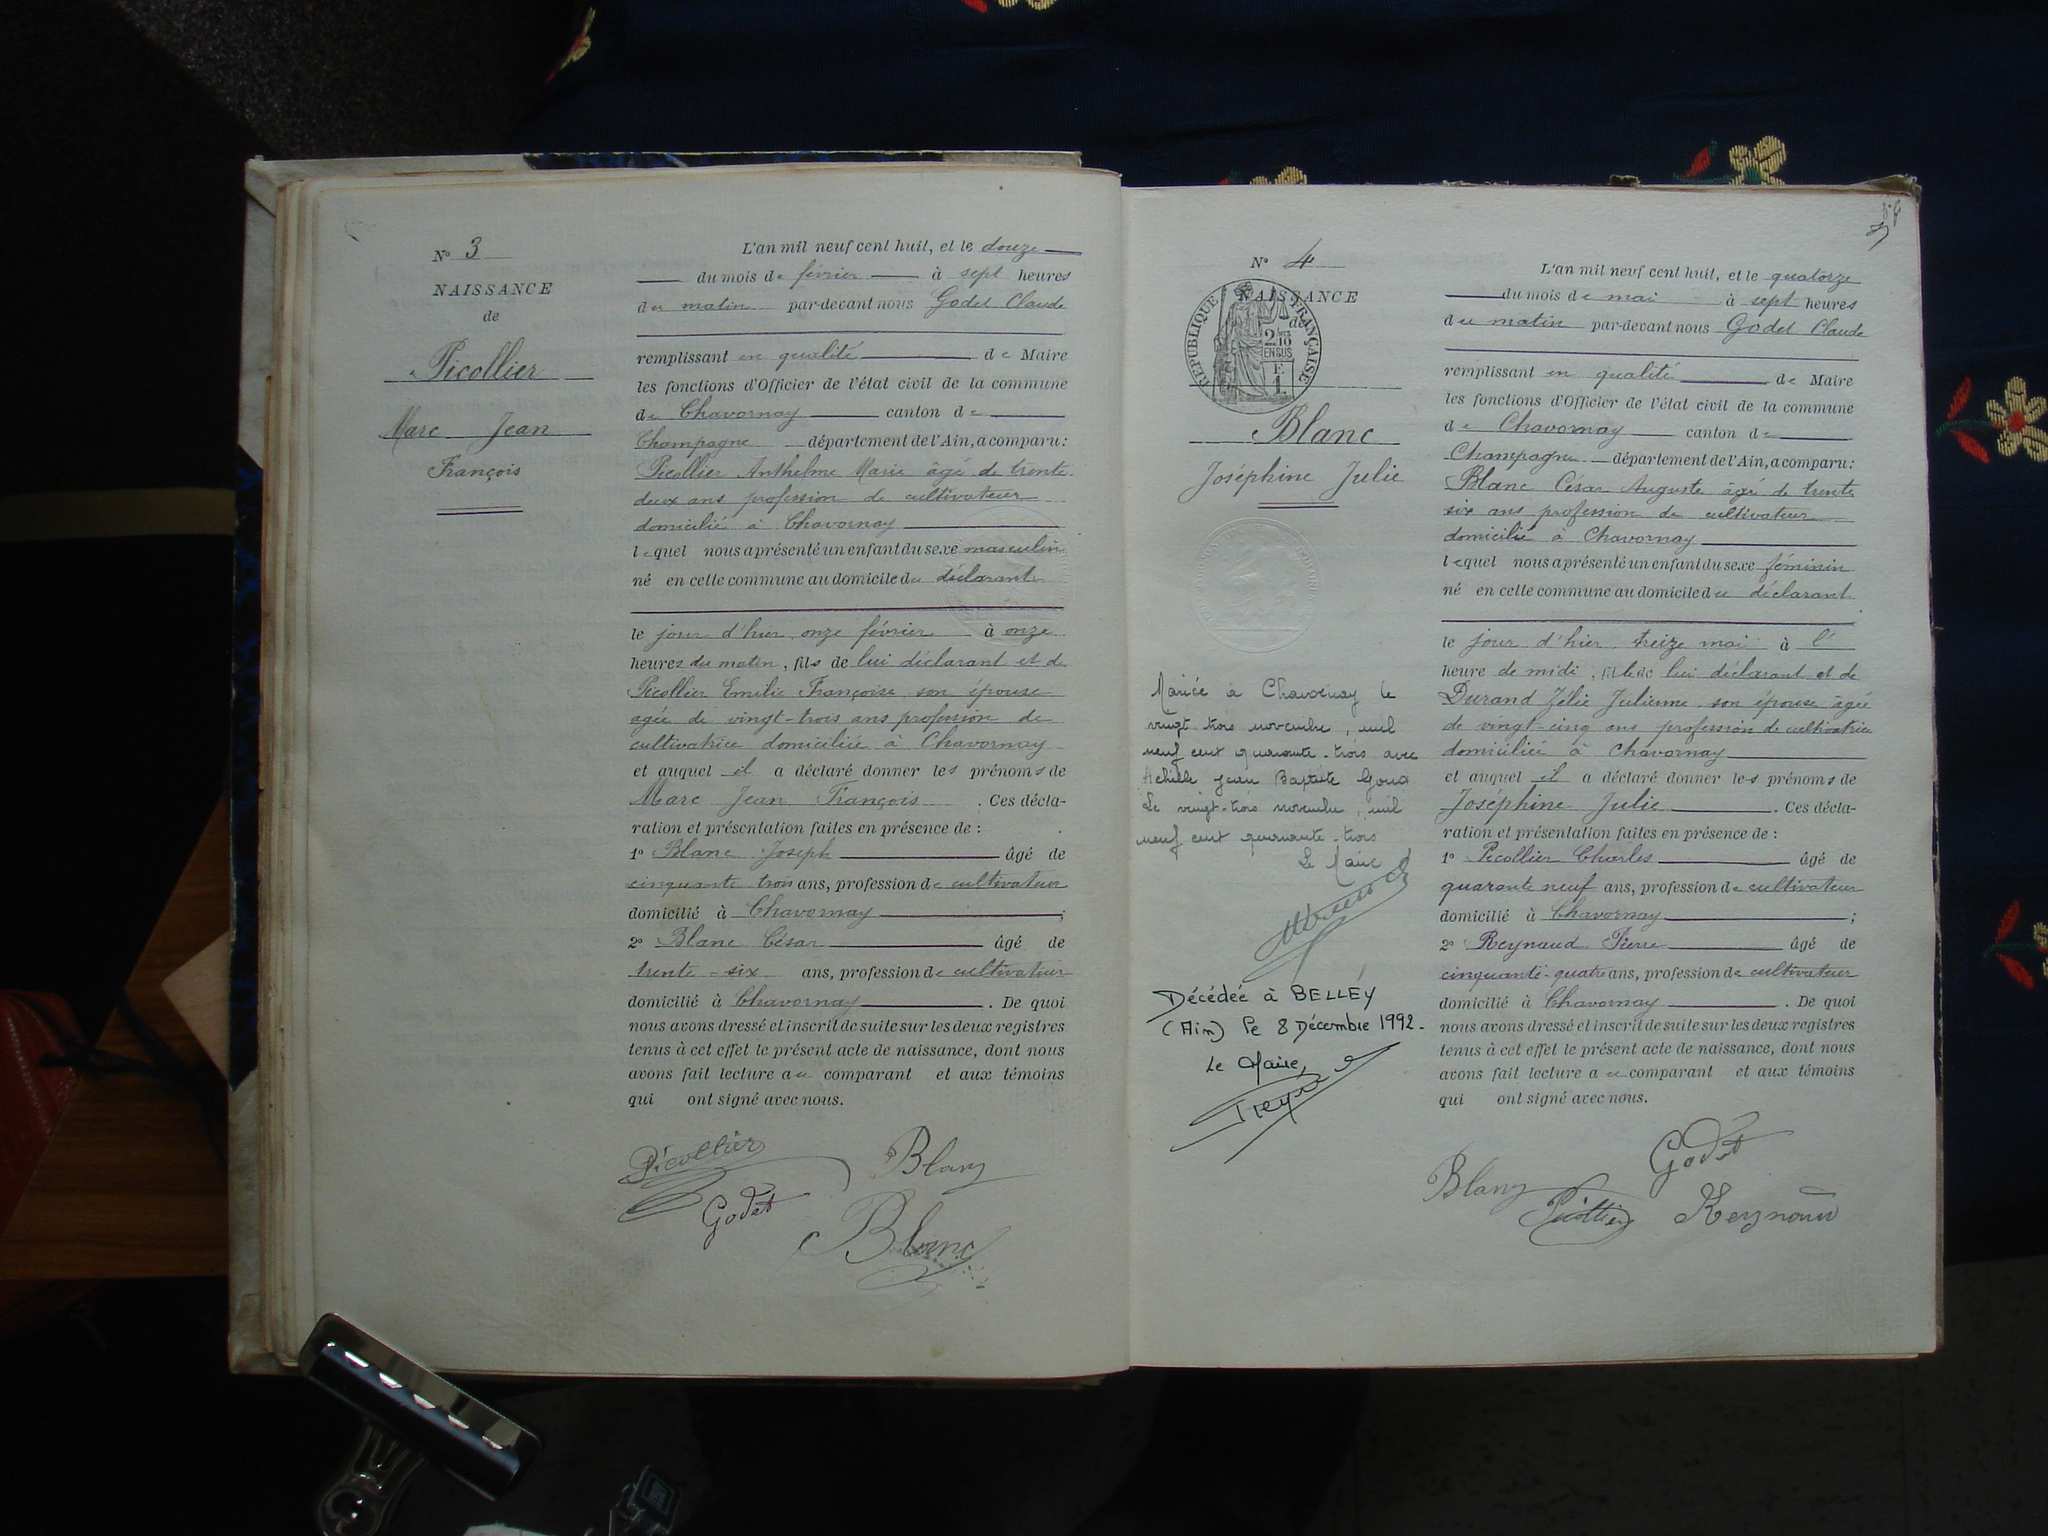 N° 3
NAISSANCE
de
Picollier
Marc Jean
François
L'an mil neuf cent huit, et le douze
du mois de février à sept heures
du matin par-devant nous Godet Claude
remplissant en qualité de Maire
les fonctions d'Officier de l'état civil de la commune
de Chavornay canton de
Champagne département de l'Ain, a comparu:
Picollier Anthelme Marie âgé de trente
deux ans profession de cultivateur
domicilié à Chavornay
lequel nous a présenté un enfant du sexe masculin
né en cette commune au domicile du déclarant
le jour d'hier onze février à onze
heures du matin, fils de lui déclarant et de
Picollier Emilie Françoise son épouse
agée de vingt-trois ans profession de
cultivatrice domiciliée à Chavornay
et auquel il a déclaré donner les prénoms de
Marc Jean François. Ces décla-
ration et présentation faites en présence de :
1° Blanc Joseph âgé de
cinquante trois ans, profession de cultivateur
domicilié à Chavornay ;
2° Blanc César âgé de
trente-six ans, profession de cultivateur
domicilié à Chavornay. De quoi
nous avons dressé et inscrit de suite sur les deux registres
tenus à cet effet le présent acte de naissance, dont nous
avons fait lecture au comparant et aux témoins
qui ont signé avec nous.
Picollier Blanc
Godet
Blanc
N° 4
NAISSANCE
de
RÉPUBLIQUE FRANÇAISE
2/10
EN SUS
Blanc
Joséphine Julie
Mariée à Chavornay le
vingt trois novembre, mil
neuf cent quarante-trois avec
Achille Jean Baptiste
Le vingt-trois novembre, mil
neuf cent quarante-trois
Le Maire
Décédée à BELLEY
(Ain) le 8 Décembre 1992.
Le Maire,
L'an mil neuf cent huit, et le quatorze
du mois de mai à sept heures
du matin par-devant nous Godet Claude
remplissant en qualité de Maire
les fonctions d'Officier de l'état civil de la commune
de Chavornay canton de
Champagne département de l'Ain, a comparu:
Blanc César Auguste âgé de trente
six ans profession de cultivateur
domicilié à Chavornay
lequel nous a présenté un enfant du sexe féminin
né en cette commune au domicile du déclarant
le jour d'hier treize mai à l'
heure de midi, fille de lui déclarant et de
Durand Zélie Julienne son épouse âgée
de vingt-cinq ans profession de cultivatrice
domiciliée à Chavornay
et auquel il a déclaré donner les prénoms de
Joséphine Julie. Ces décla-
ration et présentation faites en présence de :
1° Picollier Charles âgé de
quarante neuf ans, profession de cultivateur
domicilié à Chavornay ;
2° Reynaud Pierre âgé de
cinquante-quatre ans, profession de cultivateur
domicilié à Chavornay. De quoi
nous avons dressé et inscrit de suite sur les deux registres
tenus à cet effet le présent acte de naissance, dont nous
avons fait lecture au comparant et aux témoins
qui ont signé avec nous.
Godet
Blanc Picollier Reynaud